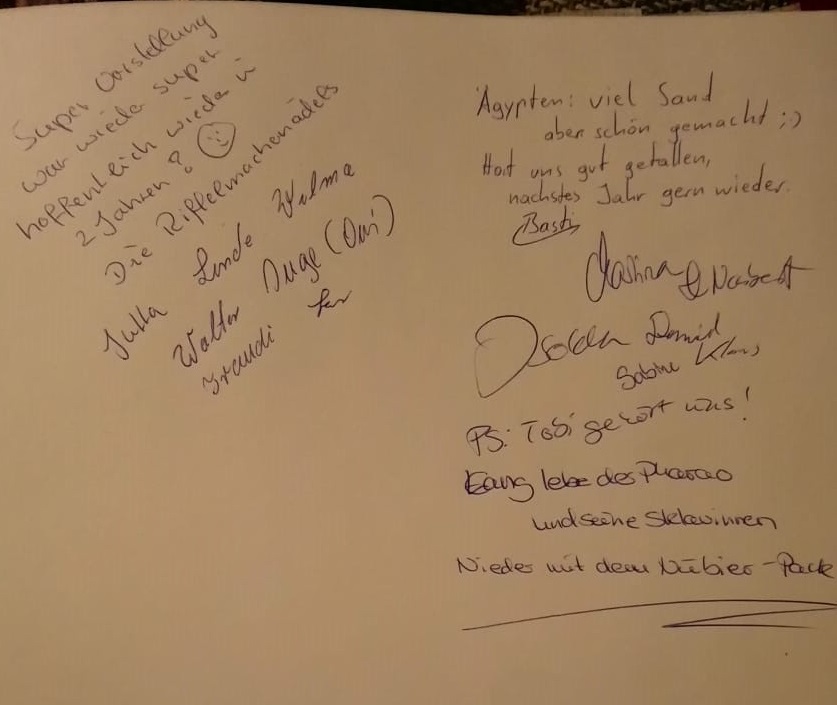 Super Vorstellung
war wieder super
hoffentlich wieder in
2 Jahren? ☺
Die Riffelmachermädels
Jutta Linde Wilma
Walter Inge (Omi)
Traudi
Ägypten: viel Sand
aber schön gemacht ;-)
Hat uns gut gefallen,
nächstes Jahr gern wieder.
Basti
& Norbert
Isolde Daniel
Sabine Klaus
PS: Tobi gehört uns!
Lang lebe des Pharao
und seine Sklavinnen
Nieder mit dem Nubier-Pack